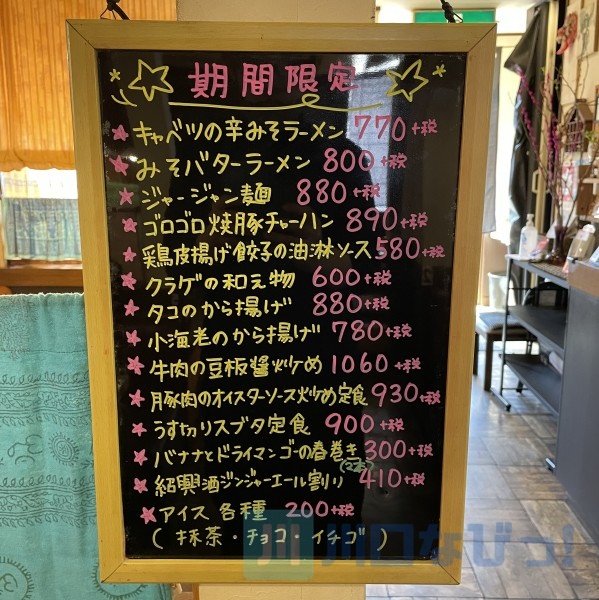 期間限定
キャベツの辛みそラーメン 770+税
みそバターラーメン 800+税
ジャージャン麺 880+税
ゴロゴロ焼豚チャーハン 890+税
鶏皮揚げ餃子の油淋ソース 580+税
クラゲの和え物 600+税
タコのから揚げ 880+税
小海老のから揚げ 780+税
牛肉の豆板醤炒め 1060+税
豚肉のオイスターソース炒め定食 930+税
うす切りスブタ定食 900+税
バナナとドライマンゴの春巻き 300+税
(2本)
紹興酒ジンジャーエール割り 410+税
アイス 各種 200+税
(抹茶・チョコ・イチゴ)
川口なびっ!